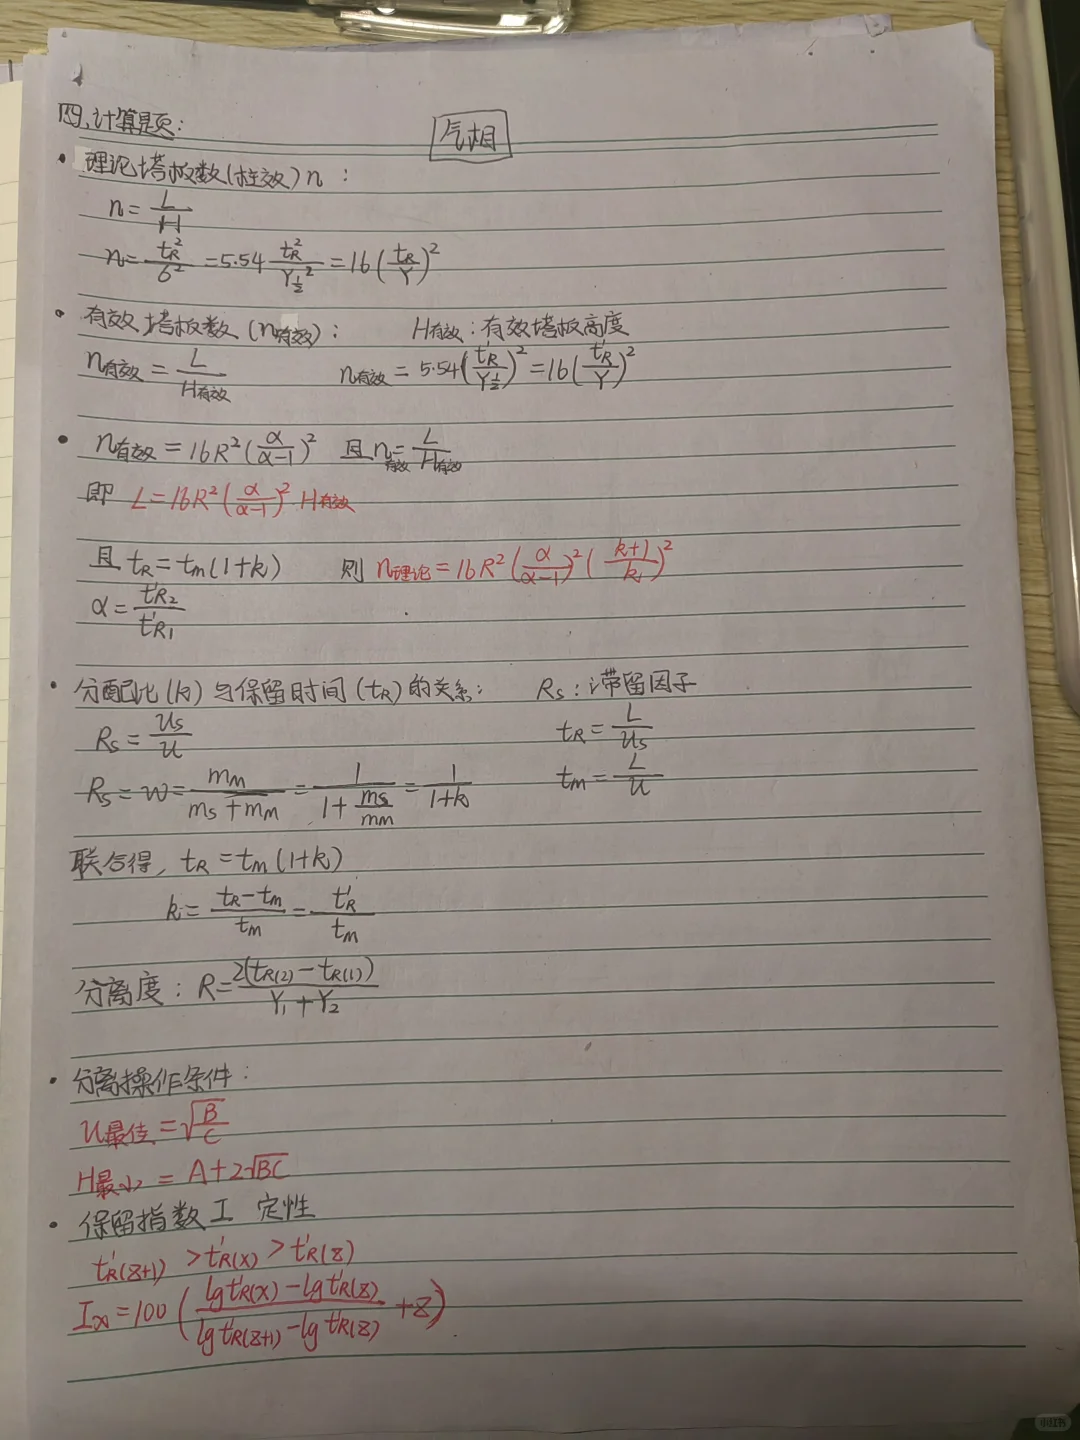 四、计算题:
气相
· 理论塔板数(柱效)n:
n=L/H
n=t_R²/σ²=5.54 t_R²/Y_½²=16(t_R/Y)²
· 有效塔板数(n有效): H有效:有效塔板高度
n有效=L/H有效 n有效=5.54(t'_R/Y_½)²=16(t'_R/Y)²
· n有效=16R²(α/α-1)² 且n有效=L/H有效
即 L=16R²(α/α-1)² H有效
且 t_R=t_m(1+k) 则 n理论=16R²(α/α-1)²(k+1/k)²
α=t'_R2/t'_R1
· 分配比(k)与保留时间(t_R)的关系: R_s:滞留因子
R_s=u_s/u t_R=L/u_s
R_s=w=m_M/m_s+m_M=1/1+m_s/m_M=1/1+k t_m=L/u
联合得, t_R=t_m(1+k)
k=t_R-t_m/t_m=t'_R/t_m
分离度:R=2(t_R(2)-t_R(1))/Y_1+Y_2
· 分离操作条件:
u最佳=√B/C
H最小=A+2√BC
· 保留指数I 定性
t'_R(z+1)>t'_R(x)>t'_R(z)
I_x=100(lgt'_R(x)-lgt'_R(z)/lgt'_R(z+1)-lgt'_R(z)+z)
小红书